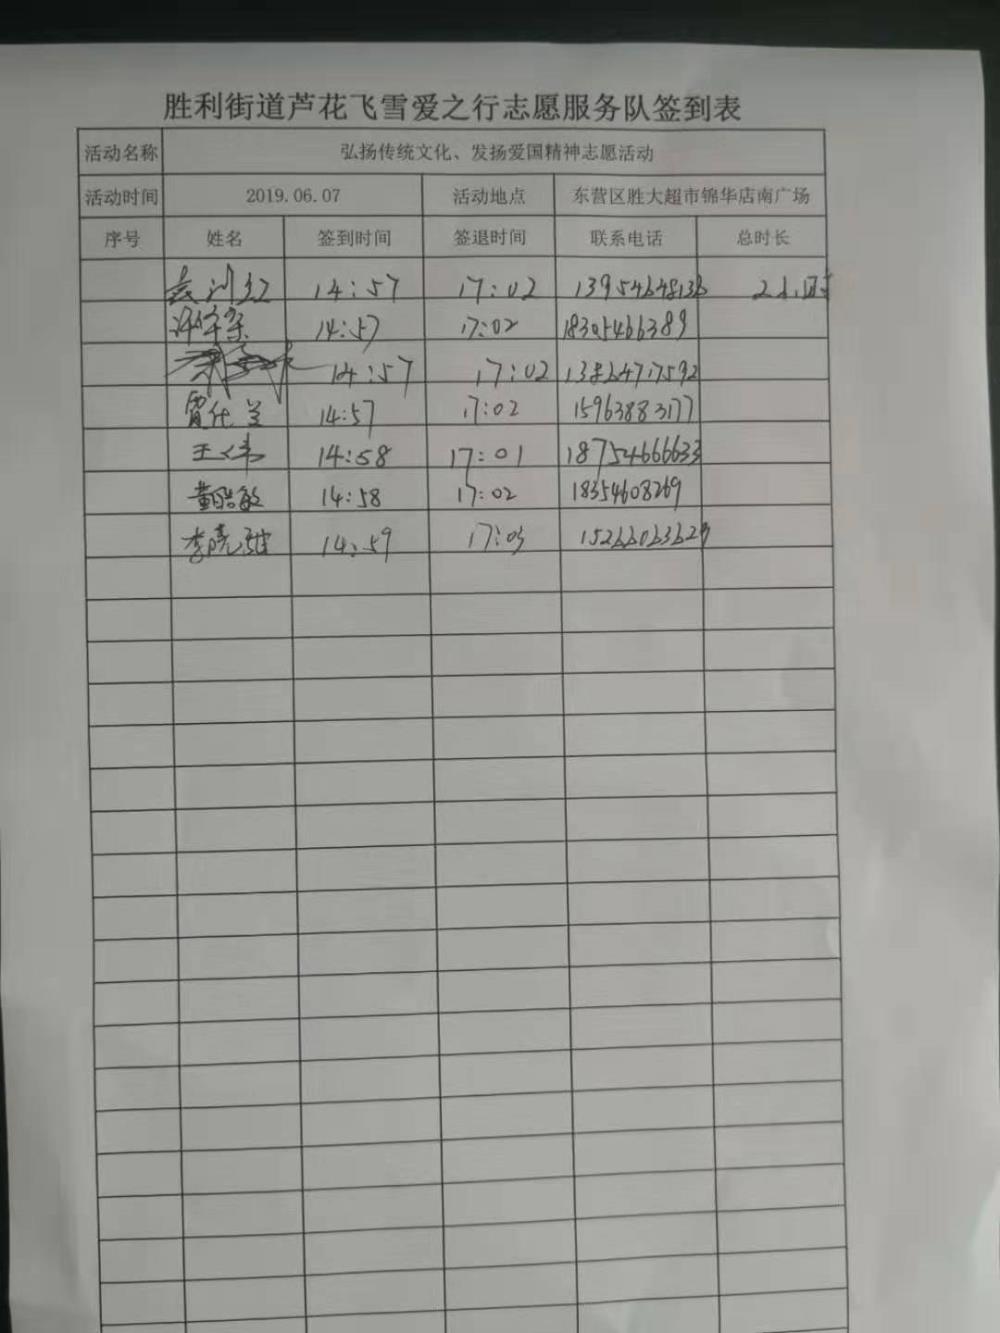 胜利街道芦花飞雪爱之行志愿服务队签到表
活动名称 弘扬传统文化、发扬爱国精神志愿活动
活动时间 2019.06.07 活动地点 东营区胜大超市锦华店南广场
序号 姓名 签到时间 签退时间 联系电话 总时长
14:57 17:02 13954648136 2小时
14:57 17:02 18305466389
14:57 17:02 13864717592
14:57 17:02 15963883177
王 伟 14:58 17:01 18754666633
黄皓敏 14:58 17:02 18354608269
李晓 14:59 17:03 15266063629